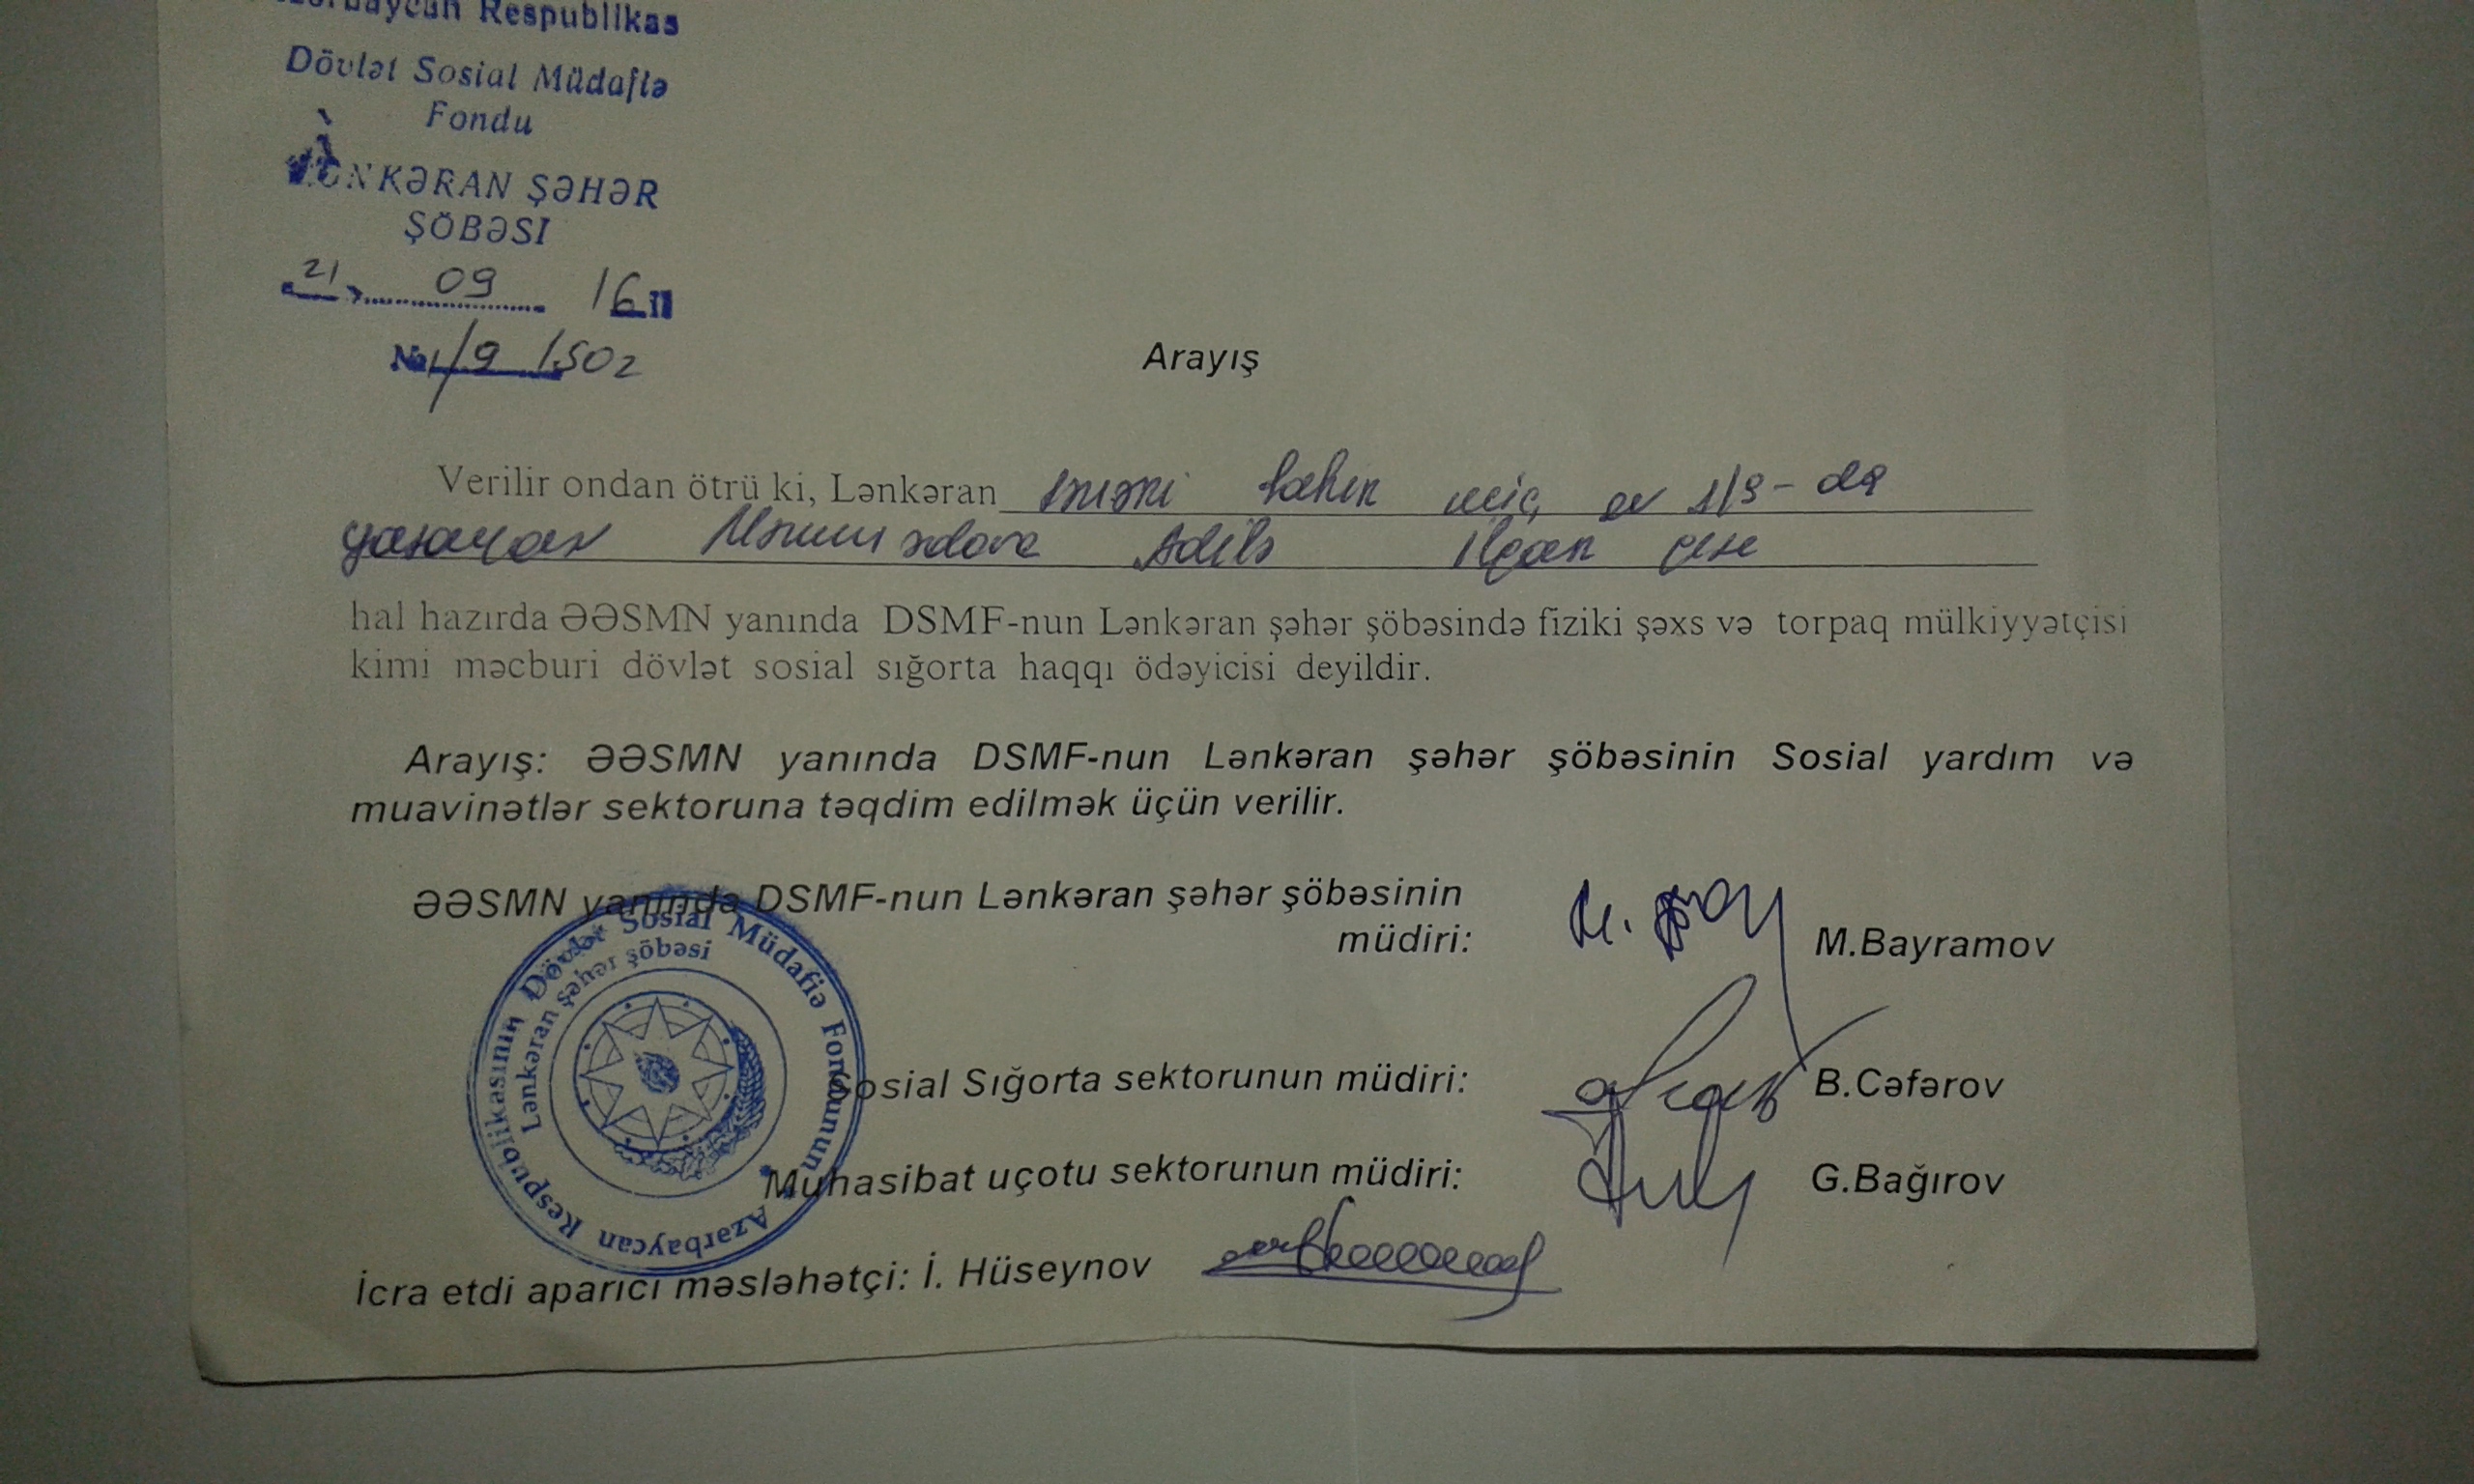 Azərbaycan Respublikas
Dövlət Sosial Müdafiə
Fondu
LƏNKƏRAN ŞƏHƏR
ŞÖBƏSI
21 09 16
№ 1/9 1502
Arayış
Verilir ondan ötrü ki, Lənkəran ev 1/9-da
yaşayan Adilə qızı
hal hazırda ƏƏSMN yanında DSMF-nun Lənkəran şəhər şöbəsində fiziki şəxs və torpaq mülkiyyətçisi
kimi məcburi dövlət sosial sığorta haqqı ödəyicisi deyildir.
Arayış: ƏƏSMN yanında DSMF-nun Lənkəran şəhər şöbəsinin Sosial yardım və
muavinətlər sektoruna təqdim edilmək üçün verilir.
ƏƏSMN yanında DSMF-nun Lənkəran şəhər şöbəsinin
müdiri: M.Bayramov
Azərbaycan Respublikasının Dövlət Sosial Müdafiə Fondunun
Lənkəran şəhər şöbəsi
Sosial Sığorta sektorunun müdiri: B.Cəfərov
Muhasibat uçotu sektorunun müdiri: G.Bağırov
İcra etdi aparıcı məsləhətçi: İ. Hüseynov